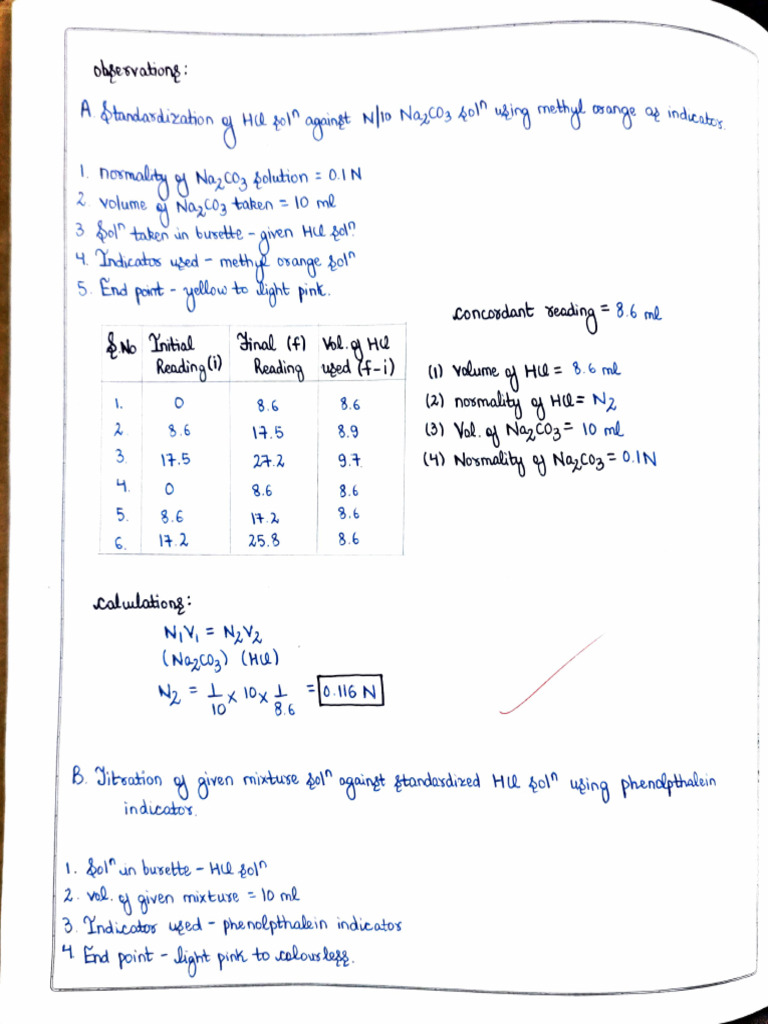 Observations:
A. Standardization of HCl solⁿ against N/10 Na₂CO₃ solⁿ using methyl orange as indicator.
1. Normality of Na₂CO₃ solution = 0.1 N
2. Volume of Na₂CO₃ taken = 10 ml
3 Solⁿ taken in burette - given HCl solⁿ
4. Indicator used - methyl orange solⁿ
5. End point - yellow to light pink.
Concordant reading = 8.6 ml
S.No Initial Reading (i) Final (f) Reading Vol. of HCl used (f-i)
1. 0 8.6 8.6
2 8.6 17.5 8.9
3. 17.5 27.2 9.7
4. 0 8.6 8.6
5. 8.6 17.2 8.6
6. 17.2 25.8 8.6
(1) Volume of HCl = 8.6 ml
(2) normality of HCl = N₂
(3) Vol. of Na₂CO₃ = 10 ml
(4) Normality of Na₂CO₃ = 0.1N
Calculations:
N₁V₁ = N₂V₂
(Na₂CO₃) (HCl)
N₂ = 1/10 x 10 x 1/8.6 = 0.116 N
B. Titration of given mixture solⁿ against standardized HCl solⁿ using phenolpthalein
indicator.
1. Solⁿ in burette - HCl solⁿ
2. vol. of given mixture = 10 ml
3. Indicator used - phenolpthalein indicator
4 End point - light pink to colourless.